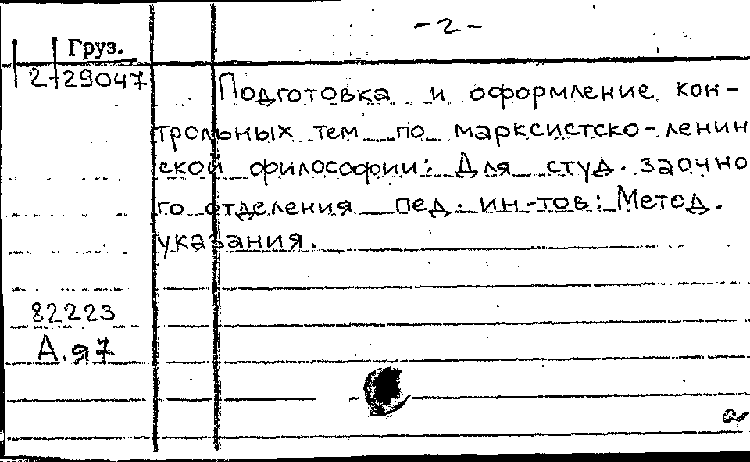 - 2 -
Груз.
2-29047
Подготовка и оформление кон-
трольных тем по марксистско-ленин
ской философии: Для студ. заочно
го отделения пед. ин-тов: Метод.
указания.
82223
А.я7